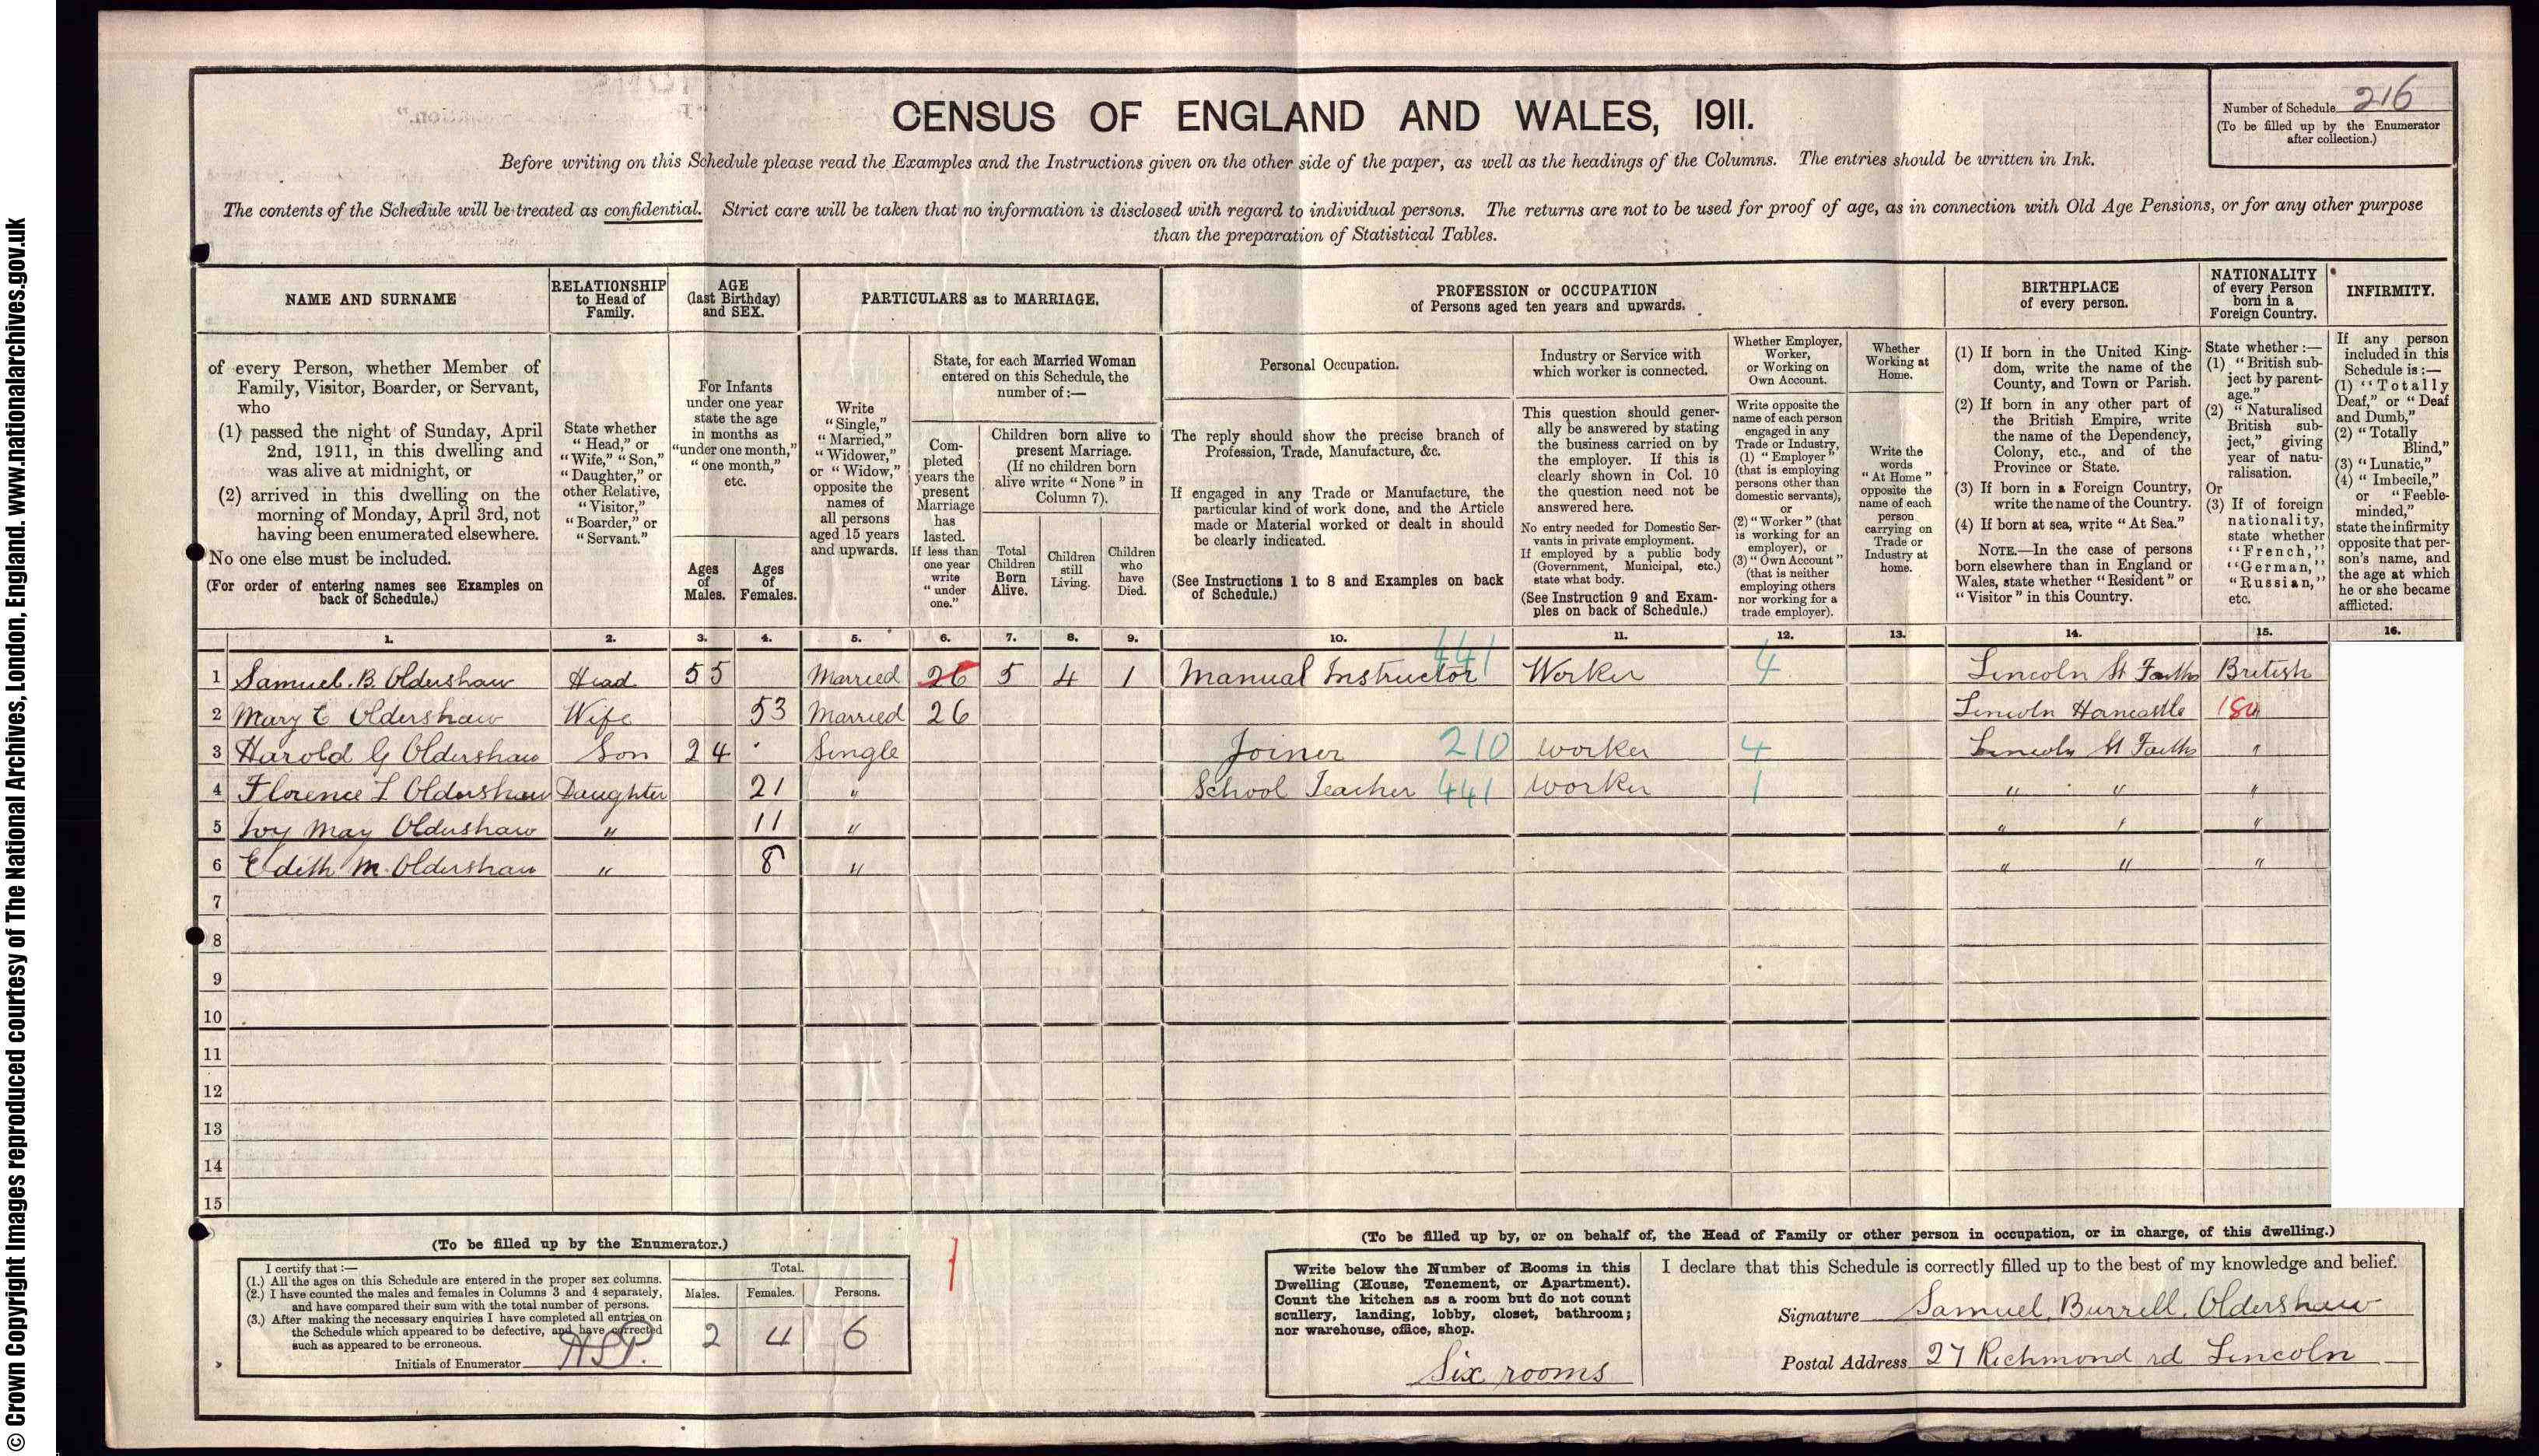 © Crown Copyright Images reproduced courtesy of The National Archives, London, England. www.nationalarchives.gov.uk
CENSUS OF ENGLAND AND WALES, 1911.
Number of Schedule 216
(To be filled up by the Enumerator
after collection.)
Before writing on this Schedule please read the Examples and the Instructions given on the other side of the paper, as well as the headings of the Columns. The entries should be written in Ink.
The contents of the Schedule will be treated as confidential. Strict care will be taken that no information is disclosed with regard to individual persons. The returns are not to be used for proof of age, as in connection with Old Age Pensions, or for any other purpose
than the preparation of Statistical Tables.
NAME AND SURNAME
of every Person, whether Member of
Family, Visitor, Boarder, or Servant,
who
(1) passed the night of Sunday, April
2nd, 1911, in this dwelling and
was alive at midnight, or
(2) arrived in this dwelling on the
morning of Monday, April 3rd, not
having been enumerated elsewhere.
No one else must be included.
(For order of entering names see Examples on
back of Schedule.)
RELATIONSHIP
to Head of
Family.
State whether
"Head," or
"Wife," "Son,"
"Daughter," or
other Relative,
"Visitor,"
"Boarder," or
"Servant."
AGE
(last Birthday)
and SEX.
For Infants
under one year
state the age
in months as
"under one month,"
"one month,"
etc.
Ages
of
Males.
Ages
of
Females.
PARTICULARS as to MARRIAGE.
Write
"Single,"
"Married,"
"Widower,"
or "Widow,"
opposite the
names of
all persons
aged 15 years
and upwards.
State, for each Married Woman
entered on this Schedule, the
number of:—
Com-
pleted
years the
present
Marriage
has
lasted.
If less than
one year
write
"under
one."
Children born alive to
present Marriage.
(If no children born
alive write "None" in
Column 7).
Total
Children
Born
Alive.
Children
still
Living.
Children
who
have
Died.
PROFESSION or OCCUPATION
of Persons aged ten years and upwards.
Personal Occupation.
The reply should show the precise branch of
Profession, Trade, Manufacture, &c.
If engaged in any Trade or Manufacture, the
particular kind of work done, and the Article
made or Material worked or dealt in should
be clearly indicated.
(See Instructions 1 to 8 and Examples on back
of Schedule.)
Industry or Service with
which worker is connected.
This question should gener-
ally be answered by stating
the business carried on by
the employer. If this is
clearly shown in Col. 10
the question need not be
answered here.
No entry needed for Domestic Ser-
vants in private employment.
If employed by a public body
(Government, Municipal, etc.)
state what body.
(See Instruction 9 and Exam-
ples on back of Schedule.)
Whether Employer,
Worker,
or Working on
Own Account.
Write opposite the
name of each person
engaged in any
Trade or Industry,
(1) "Employer"
(that is employing
persons other than
domestic servants),
or
(2) "Worker" (that
is working for an
employer), or
(3) "Own Account"
(that is neither
employing others
nor working for a
trade employer).
Whether
Working at
Home.
Write the
words
"At Home"
opposite the
name of each
person
carrying on
Trade or
Industry at
home.
BIRTHPLACE
of every person.
(1) If born in the United King-
dom, write the name of the
County, and Town or Parish.
(2) If born in any other part of
the British Empire, write
the name of the Dependency,
Colony, etc., and of the
Province or State.
(3) If born in a Foreign Country,
write the name of the Country.
(4) If born at sea, write "At Sea."
NOTE.—In the case of persons
born elsewhere than in England or
Wales, state whether "Resident" or
"Visitor" in this Country.
NATIONALITY
of every Person
born in a
Foreign Country.
State whether:—
(1) "British sub-
ject by parent-
age."
(2) "Naturalised
British sub-
ject," giving
year of natu-
ralisation.
Or
(3) If of foreign
nationality,
state whether
"French,"
"German,"
"Russian,"
etc.
INFIRMITY.
If any person
included in this
Schedule is:—
(1) "Totally
Deaf," or "Deaf
and Dumb,"
(2) "Totally
Blind,"
(3) "Lunatic,"
(4) "Imbecile,"
or "Feeble-
minded,"
state the infirmity
opposite that per-
son's name, and
the age at which
he or she became
afflicted.
1. 2. 3. 4. 5. 6. 7. 8. 9. 10. 11. 12. 13. 14. 15. 16.
1 Samuel. B. Oldershaw Head 55 Married 26 5 4 1 Manual Instructor 441 Worker 4 Lincoln St Faiths British
2 Mary E Oldershaw Wife 53 Married 26 Lincoln 180 "
3 Harold G Oldershaw Son 24 Single Joiner 210 Worker 4 Lincoln St Faiths "
4 Florence L Oldershaw Daughter 21 " School Teacher 441 Worker 1 " " "
5 Ivy May Oldershaw " 11 " " " "
6 Edith M. Oldershaw " 8 " " " "
7
8
9
10
11
12
13
14
15
(To be filled up by the Enumerator.)
I certify that:—
(1.) All the ages on this Schedule are entered in the proper sex columns.
(2.) I have counted the males and females in Columns 3 and 4 separately,
and have compared their sum with the total number of persons.
(3.) After making the necessary enquiries I have completed all entries on
the Schedule which appeared to be defective, and have corrected
such as appeared to be erroneous.
Initials of Enumerator
Total.
Males. Females. Persons.
2 4 6
(To be filled up by, or on behalf of, the Head of Family or other person in occupation, or in charge, of this dwelling.)
Write below the Number of Rooms in this
Dwelling (House, Tenement, or Apartment).
Count the kitchen as a room but do not count
scullery, landing, lobby, closet, bathroom;
nor warehouse, office, shop.
Six rooms
I declare that this Schedule is correctly filled up to the best of my knowledge and belief.
Signature Samuel. Burrell. Oldershaw
Postal Address 27 Richmond rd Lincoln